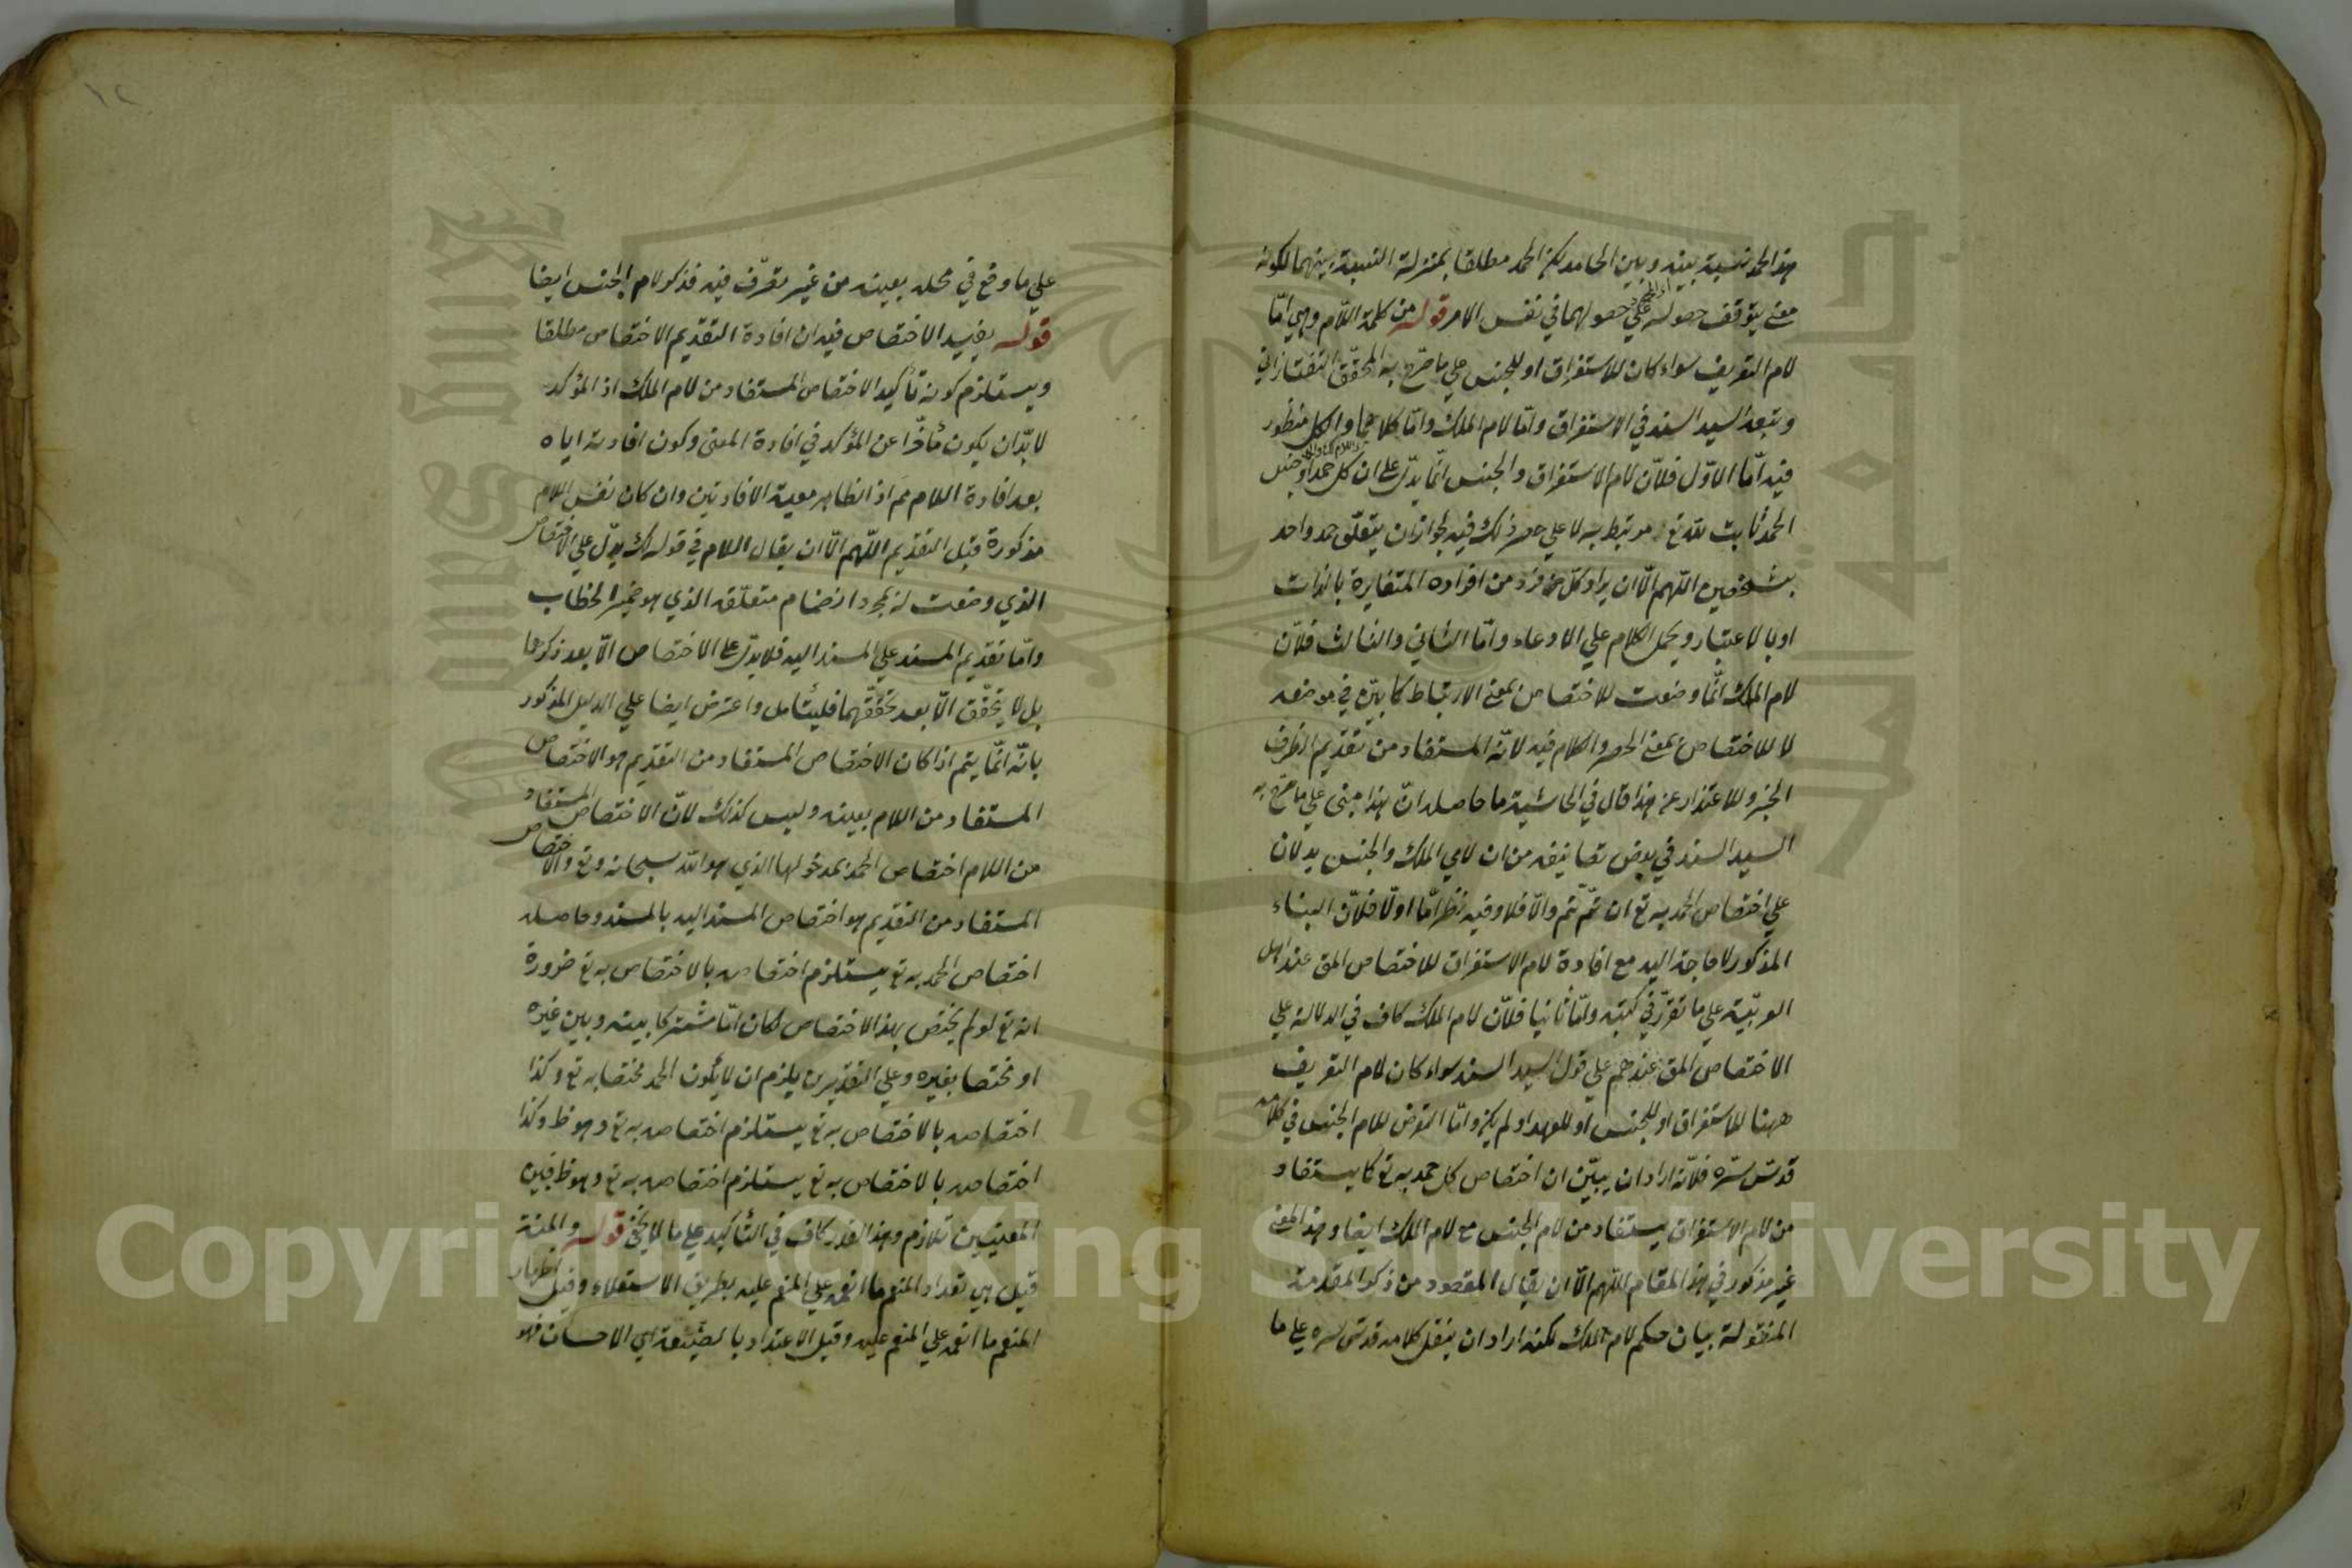 هذا الحمد نسبة بينه وبين الحامد لكن الحمد مطلقا بمنزلة النسبة بينهما لكونه
معنى يتوقف حصوله على حصولهما في نفس الامر قوله من كلمة اللام وهي اما
لام التعريف سواء كان للاستغراق او للجنس على ما صرح به المحقق التفتازاني
وتبعه السيد السند في الاستغراق واما لام الملك واما كلاهما والكل منظور
فيه اما الاول فلان لام الاستغراق والجنس انما يدل على ان كل حمد او جنس
الحمد ثابت لله تع مرتبط به لا على حصر ذلك فيه لجواز ان يتعلق حمد واحد
بشخصين اللهم الا ان يراد كل فرد من افراده المتغايرة بالذات
او بالاعتبار ويحمل الكلام على الادعاء واما الثاني والثالث فلان
لام الملك انما وضعت للاختصاص بمعنى الارتباط كما بين في موضعه
لا للاختصاص بمعنى الحصر والكلام فيه لانه المستفاد من تقديم الظرف
الخبر وللاعتذار عن هذا قال في الحاشية ما حاصله ان هذا مبنى على ما صرح به
السيد السند في بعض تصانيفه من ان لامي الملك والجنس يدلان
على اختصاص الحمد به تع ان تم تم والا فلا وفيه نظر اما اولا فلان البناء
المذكور لا حاجة اليه مع افادة لام الاستغراق للاختصاص المق عند اهل
العربية على ما تقرر في كتبه واما ثانيا فلان لام الملك كاف في الدلالة على
الاختصاص المق عندهم على قول السيد السند سواء كان لام التعريف
ههنا للاستغراق او للجنس او للعهد او لم يكن واما التعرض للام الجنس في كلامه
قدس سره فلانه اراد ان يبين ان اختصاص كل حمد به تع كما يستفاد
من لام الاستغراق يستفاد من لام الجنس مع لام الملك ايضا وهذا المعنى
غير مذكور في هذا المقام اللهم الا ان يقال المقصود من ذكر المقدمة
المنقولة بيان حكم لام الملك لكنه اراد ان ينقل كلامه قدس سره على ما
على ما وقع في محله بعينه من غير تصرف فيه فذكر لام الجنس ايضا
قوله يفيد الاختصاص فيه ان افادة التقديم الاختصاص مطلقا
ويستلزم كونه تأكيد الاختصاص المستفاد من لام الملك اذ المؤكد
لا بد ان يكون متأخرا عن المؤكد في افادة المعنى وكون افادته اياه
بعد افادة اللام مم اذ الظاهر معية الافادتين وان كان نفس اللام
مذكورة قبل التقديم اللهم الا ان يقال اللام في قوله لك يدل على الاختصاص
الذي وضعت له بمجرد انضمام متعلقه الذي هو ضمير الخطاب
واما تقديم المسند على المسند اليه فلا يدل على الاختصاص الا بعد ذكرهما
بل لا يتحقق الا بعد تحققهما فليتأمل واعترض ايضا على الدليل المذكور
بانه انما يتم اذا كان الاختصاص المستفاد من التقديم هو الاختصاص
المستفاد من اللام بعينه وليس كذلك لان الاختصاص المستفاد
من اللام اختصاص الحمد بمدخولها الذي هو الله سبحانه وتع والاختصاص
المستفاد من التقديم هو اختصاص المسند اليه بالمسند وحاصله
اختصاص الحمد به تع يستلزم اختصاصه بالاختصاص به تع ضرورة
انه تع لو لم يختص بهذا الاختصاص لكان اما مشتركا بينه وبين غيره
او مختصا بغيره وعلى التقديرين يلزم ان لا يكون الحمد مختصا به تع وكذا
اختصاصه بالاختصاص به تع يستلزم اختصاصه به تع وهو ظ وكذا
اختصاصه بالاختصاص به تع يستلزم اختصاصه به تع وهو ظ فبين
المعنيين تلازم وهذا القدر كاف في التأكيد على ما لا يخفى قوله والمنة
قيل هي تعداد المنعم ما انعمه على المنعم عليه بطريق الاستعلاء وقيل اظهار
المنعم ما انعمه على المنعم عليه وقيل الاعتداد بالصنيعة اي الاحسان فهو
١٢
Copyright © King Saud University
1957